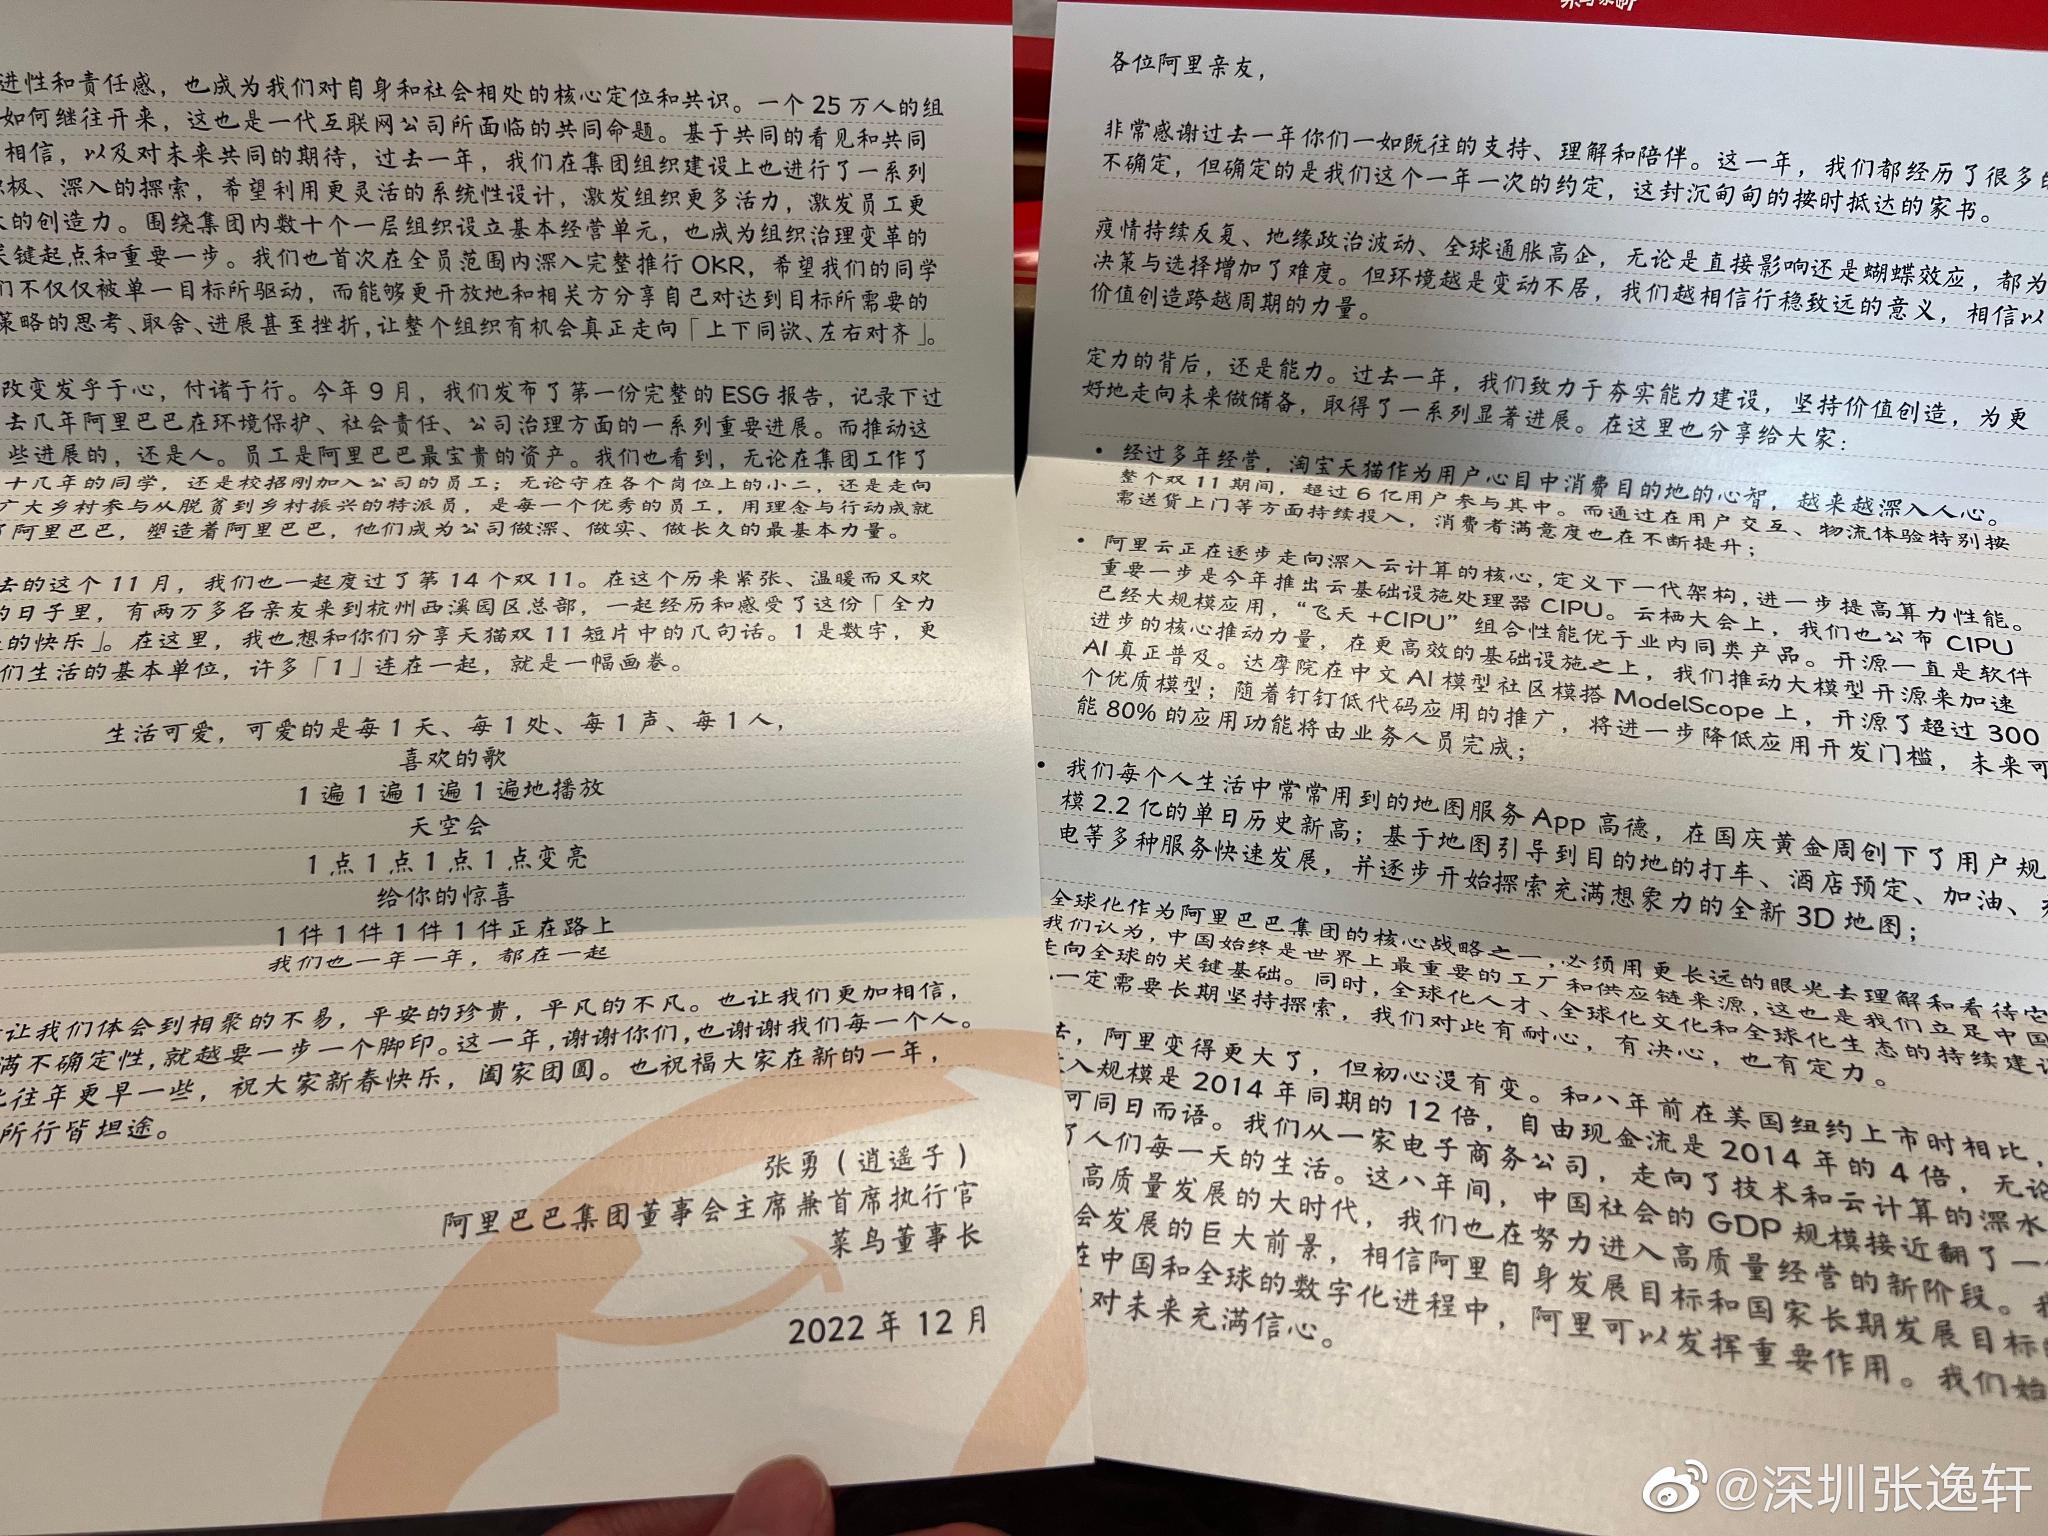 各位阿里亲友，
非常感谢过去一年你们一如既往的支持、理解和陪伴。这一年，我们都经历了很多
不确定，但确定的是我们这个一年一次的约定，这封沉甸甸的按时抵达的家书。
疫情持续反复、地缘政治波动、全球通胀高企，无论是直接影响还是蝴蝶效应，都为
决策与选择增加了难度。但环境越是变动不居，我们越相信行稳致远的意义，相信以
价值创造跨越周期的力量。
定力的背后，还是能力。过去一年，我们致力于夯实能力建设，坚持价值创造，为更
好地走向未来做储备，取得了一系列显著进展。在这里也分享给大家：
• 经过多年经营，淘宝天猫作为用户心目中消费目的地的心智，越来越深入人心。
整个双 11 期间，超过 6 亿用户参与其中。而通过在用户交互、物流体验特别按
需送货上门等方面持续投入，消费者满意度也在不断提升；
• 阿里云正在逐步走向深入云计算的核心，定义下一代架构，进一步提高算力性能。
重要一步是今年推出云基础设施处理器 CIPU。云栖大会上，我们也公布 CIPU
已经大规模应用，“飞天 +CIPU”组合性能优于业内同类产品。开源一直是软件
进步的核心推动力量，在更高效的基础设施之上，我们推动大模型开源来加速
AI 真正普及。达摩院在中文 AI 模型社区模搭 ModelScope 上，开源了超过 300
个优质模型；随着钉钉低代码应用的推广，将进一步降低应用开发门槛，未来可
能 80% 的应用功能将由业务人员完成；
• 我们每个人生活中常常用到的地图服务 App 高德，在国庆黄金周创下了用户规
模 2.2 亿的单日历史新高；基于地图引导到目的地的打车、酒店预定、加油、
电等多种服务快速发展，并逐步开始探索充满想象力的全新 3D 地图；
全球化作为阿里巴巴集团的核心战略之一，必须用更长远的眼光去理解和看待它
我们认为，中国始终是世界上最重要的工厂和供应链来源，这也是我们立足中国
走向全球的关键基础。同时，全球化人才、全球化文化和全球化生态的持续建
一定需要长期坚持探索，我们对此有耐心，有决心，也有定力。
去，阿里变得更大了，但初心没有变。和八年前在美国纽约上市时相比，
入规模是 2014 年同期的 12 倍，自由现金流是 2014 年的 4 倍，无论
可同日而语。我们从一家电子商务公司，走向了技术和云计算的深水
了人们每一天的生活。这八年间，中国社会的 GDP 规模接近翻了一
高质量发展的大时代，我们也在努力进入高质量经营的新阶段。
会发展的巨大前景，相信阿里自身发展目标和国家长期发展目标
在中国和全球的数字化进程中，阿里可以发挥重要作用。我们始
对未来充满信心。
进性和责任感，也成为我们对自身和社会相处的核心定位和共识。一个 25 万人的组
如何继往开来，这也是一代互联网公司所面临的共同命题。基于共同的看见和共同
相信，以及对未来共同的期待，过去一年，我们在集团组织建设上也进行了一系列
极、深入的探索，希望利用更灵活的系统性设计，激发组织更多活力，激发员工更
的创造力。围绕集团内数十个一层组织设立基本经营单元，也成为组织治理变革的
关键起点和重要一步。我们也首次在全员范围内深入完整推行 OKR，希望我们的同学
们不仅仅被单一目标所驱动，而能够更开放地和相关方分享自己对达到目标所需要的
策略的思考、取舍、进展甚至挫折，让整个组织有机会真正走向「上下同欲、左右对齐」。
改变发乎于心，付诸于行。今年 9 月，我们发布了第一份完整的 ESG 报告，记录下过
去几年阿里巴巴在环境保护、社会责任、公司治理方面的一系列重要进展。而推动这
些进展的，还是人。员工是阿里巴巴最宝贵的资产。我们也看到，无论在集团工作了
十几年的同学，还是校招刚加入公司的员工；无论守在各个岗位上的小二，还是走向
广大乡村参与从脱贫到乡村振兴的特派员，是每一个优秀的员工，用理念与行动成就
了阿里巴巴，塑造着阿里巴巴，他们成为公司做深、做实、做长久的最基本力量。
去的这个 11 月，我们也一起度过了第 14 个双 11。在这个历来紧张、温暖而又欢
的日子里，有两万多名亲友来到杭州西溪园区总部，一起经历和感受了这份「全力
的快乐」。在这里，我也想和你们分享天猫双 11 短片中的几句话。1 是数字，更
们生活的基本单位，许多「1」连在一起，就是一幅画卷。
生活可爱，可爱的是每 1 天、每 1 处、每 1 声、每 1 人，
喜欢的歌
1 遍 1 遍 1 遍 1 遍地播放
天空会
1 点 1 点 1 点 1 点变亮
给你的惊喜
1 件 1 件 1 件 1 件正在路上
我们也一年一年，都在一起
让我们体会到相聚的不易，平安的珍贵，平凡的不凡。也让我们更加相信，
满不确定性，就越要一步一个脚印。这一年，谢谢你们，也谢谢我们每一个人。
比往年更早一些，祝大家新春快乐，阖家团圆。也祝福大家在新的一年，
所行皆坦途。
张勇（逍遥子）
阿里巴巴集团董事会主席兼首席执行官
菜鸟董事长
2022 年 12 月
@深圳张逸轩